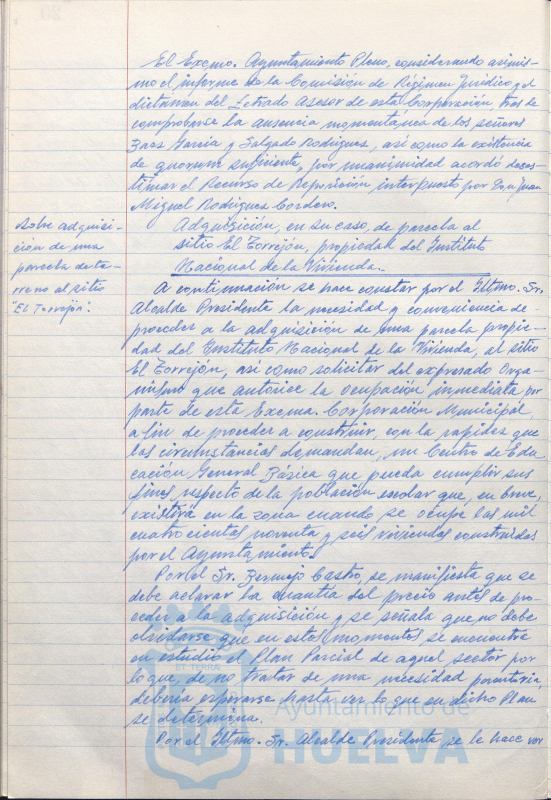 El Excmo. Ayuntamiento Pleno, considerando asimis-
mo el informe de la Comisión de Régimen Jurídico y el
dictámen del Letrado Asesor de esta Corporación tras de
comprobarse la ausencia momentánea de los señores
Baez García y Salgado Rodríguez, así como la existencia
de quorum suficiente, por unanimidad acordó deses-
timar el Recurso de Reposición interpuesto por Don Juan
Miguel Rodríguez Cordero.
Sobre adquisi-
ción de una
parcela de te-
rreno al sitio
"El Torrejón".
Adquisición, en su caso, de parcela al
sitio El Torrejón, propiedad del Instituto
Nacional de la Vivienda.
A continuación se hace constar por el Iltmo. Sr.
Alcalde Presidente la necesidad y conveniencia de
proceder a la adquisición de una parcela propie-
dad del Instituto Nacional de la Vivienda, al sitio
El Torrejón, así como solicitar del expresado Orga-
nismo que autorice la ocupación inmediata por
parte de esta Excma. Corporación Municipal
a fin de proceder a construir, con la rapidez que
las circunstancias demandan, un Centro de Edu-
cación General Básica que pueda cumplir sus
fines respecto de la población escolar que, en breve,
existirá en la zona cuando se ocupe las mil
cuatrocientas noventa y seis viviendas construidas
por el Ayuntamiento.
Por el Sr. Bermejo Castro, se manifiesta que se
debe aclarar la cuantía del precio antes de pro-
ceder a la adquisición y se señala que no debe
olvidarse que en estos momentos se encuentra
en estudio el Plan Parcial de aquel sector por
lo que, de no tratar de una necesidad perentoria,
debería esperarse hasta ver lo que en dicho Plan
se determina.
Por el Iltmo. Sr. Alcalde Presidente se le hace ver
Ayuntamiento de
HUELVA